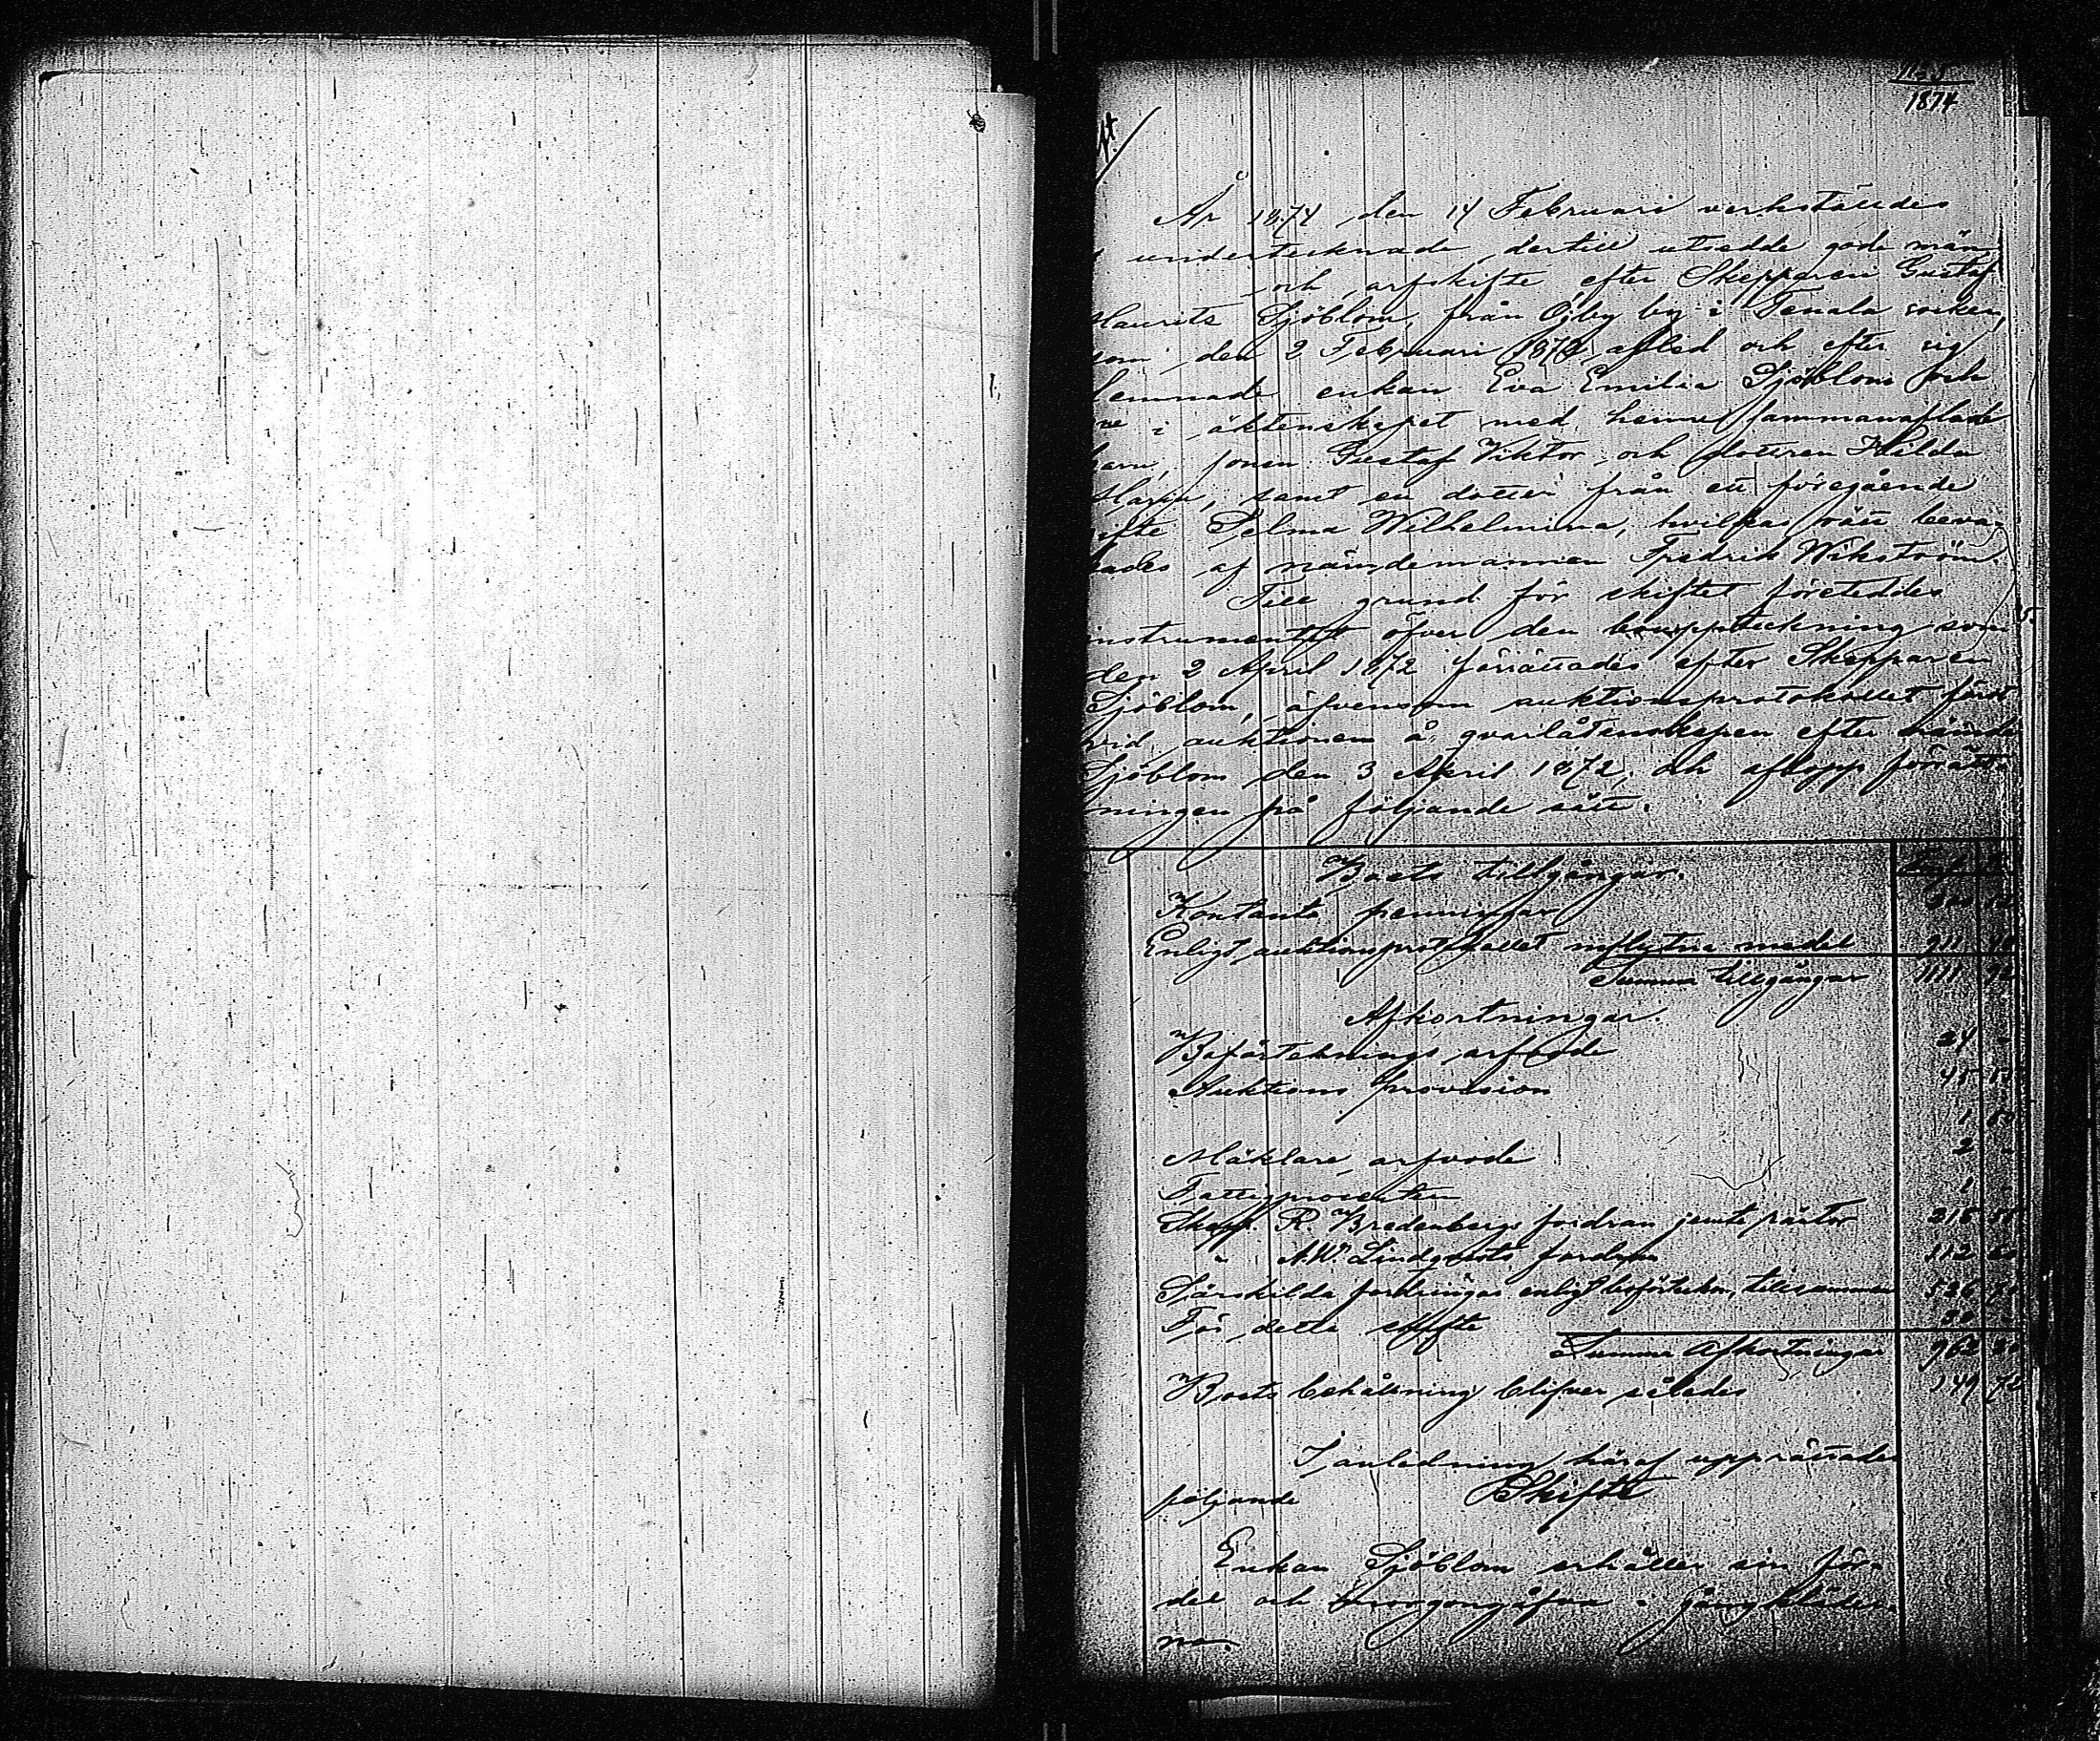 1874
År 1874 den 14 Februari verkställdes
undertecknade, dertill utsedde gode män
och arfskifte efter Skepparen Gustaf
Maurits Sjöblom, från Öjby by i Tenala socken,
som den 2 Februari 1872 afled och efter sig
lemnade enkan Eva Emilia Sjöblom och
i äktenskapet med henne sammanaflade
barn, sonen Gustaf Viktor och dottren Hilda
Maria, samt en dotter från ett föregående
gifte Selma Wilhelmina, hvilkas rätt beva-
kades af nämdemannen Fredrik Wikström.
Till grund för skiftet företeddes
instrumentet öfver den bouppteckning som
den 2 April 1872 förrättades efter Skepparen
Sjöblom, äfvensom auktionsprotokollet fördt
vid auktionen å qvarlåtenskapen efter
Sjöblom den 3 April 1872, och aflopp förrätt-
ningen på följande sätt.
Boets tillgångar.
Kontante penningar
Enligt auktionsprotokollet influtne medel 911
Summa tillgångar 1111 92
Afkortningar.
Boförteknings arfvode 24 -
Auktions provision 45
1 50
Mäklare arfvode 2 -
Fattigprocenten 1 -
Skepp. R. Bredenbergs fordran jemte räntor 218
" A.W. Lindqvists fordran 112
Särskilda fordringar enligt boförtekn. tillsamman 526
För detta skifte 30 -
Summa Afkortningar 962 20
Boets behållning blifver således 149 72
I anledning häraf upprättades
följande Skifte
Enkan Sjöblom erhåller sin för-
del och morgongåfva i gångkläder-
na.